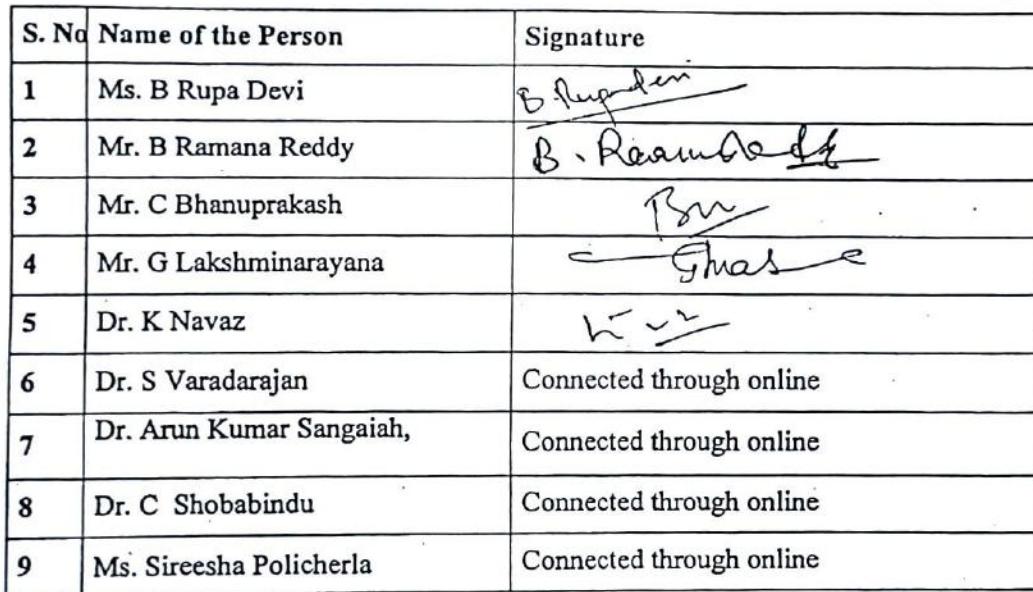 S. No Name of the Person Signature
1 Ms. B Rupa Devi B. Rupadevi
2 Mr. B Ramana Reddy B.
3 Mr. C Bhanuprakash
4 Mr. G Lakshminarayana
5 Dr. K Navaz
6 Dr. S Varadarajan Connected through online
7 Dr. Arun Kumar Sangaiah, Connected through online
8 Dr. C Shobabindu Connected through online
9 Ms. Sireesha Policherla Connected through online